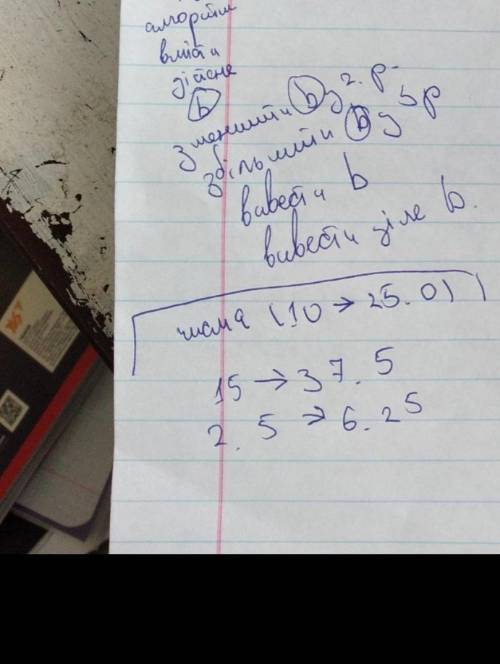 алгоритм
ввести
дійсне
b
зменшити b у 2. р.
збільшити b у 5 р
вивести b
вивести ціле b.
числа (10 → 25.0)
15 → 37.5
2.5 → 6.25